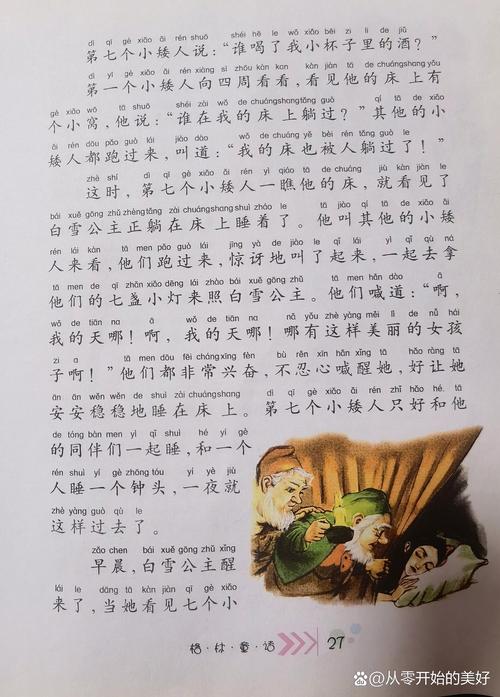 dì qī gè xiǎo ǎi rén shuō shéi hē le wǒ xiǎo bēi zi lǐ de jiǔ
第七个小矮人说：“谁喝了我小杯子里的酒？”
dì yī gè xiǎo ǎi rén xiàng sì zhōu kàn kan kàn jiàn tā de chuáng shang yǒu
第一个小矮人向四周看看，看见他的床上有
gè xiǎo wō tā shuō shéi zài wǒ de chuáng shang tǎng guò qí tā de xiǎo
个小窝，他说：“谁在我的床上躺过？”其他的小
ǎi rén dōu pǎo guò lái jiào dào wǒ de chuáng yě bèi rén tǎng guò le
矮人都跑过来，叫道：“我的床也被人躺过了！”
zhè shí dì qī gè xiǎo ǎi rén yì qiáo tā de chuáng jiù kàn jiàn le
这时，第七个小矮人一瞧他的床，就看见了
bái xuě gōng zhǔ zhèng tǎng zài chuáng shang shuì zháo le tā jiào qí tā de xiǎo ǎi
白雪公主正躺在床上睡着了。他叫其他的小矮
rén lái kàn tā men pǎo guò lái jīng yà de jiào le qǐ lái yì qǐ qù ná
人来看，他们跑过来，惊讶地叫了起来，一起去拿
tā men de qī zhǎn xiǎo dēng lái zhào bái xuě gōng zhǔ tā men hǎn dào ā
他们的七盏小灯来照白雪公主。他们喊道：“啊，
wǒ de tiān na ā wǒ de tiān na nǎ yǒu zhè yàng měi lì de nǚ hái
我的天哪！啊，我的天哪！哪有这样美丽的女孩
zi a tā men dōu fēi cháng xīng fèn bù rěn xīn hǎn xǐng tā hǎo ràng tā
子啊！”他们都非常兴奋，不忍心喊醒她，好让她
ān ān wěn wěn de shuì zài chuáng shang dì qī gè xiǎo ǎi rén zhǐ hǎo hé tā
安安稳稳地睡在床上。第七个小矮人只好和他
de tóng bàn men yì qǐ shuì hé yí gè
的同伴们一起睡，和一个
rén shuì yí gè zhōng tóu yí yè jiù
人睡一个钟头，一夜就
zhè yàng guò qù le
这样过去了。
zǎo chen bái xuě gōng zhǔ xǐng
早晨，白雪公主醒
lái le dāng tā kàn jiàn qī gè xiǎo
来了，当她看见七个小
格·林·童·话 27
@从零开始的美好